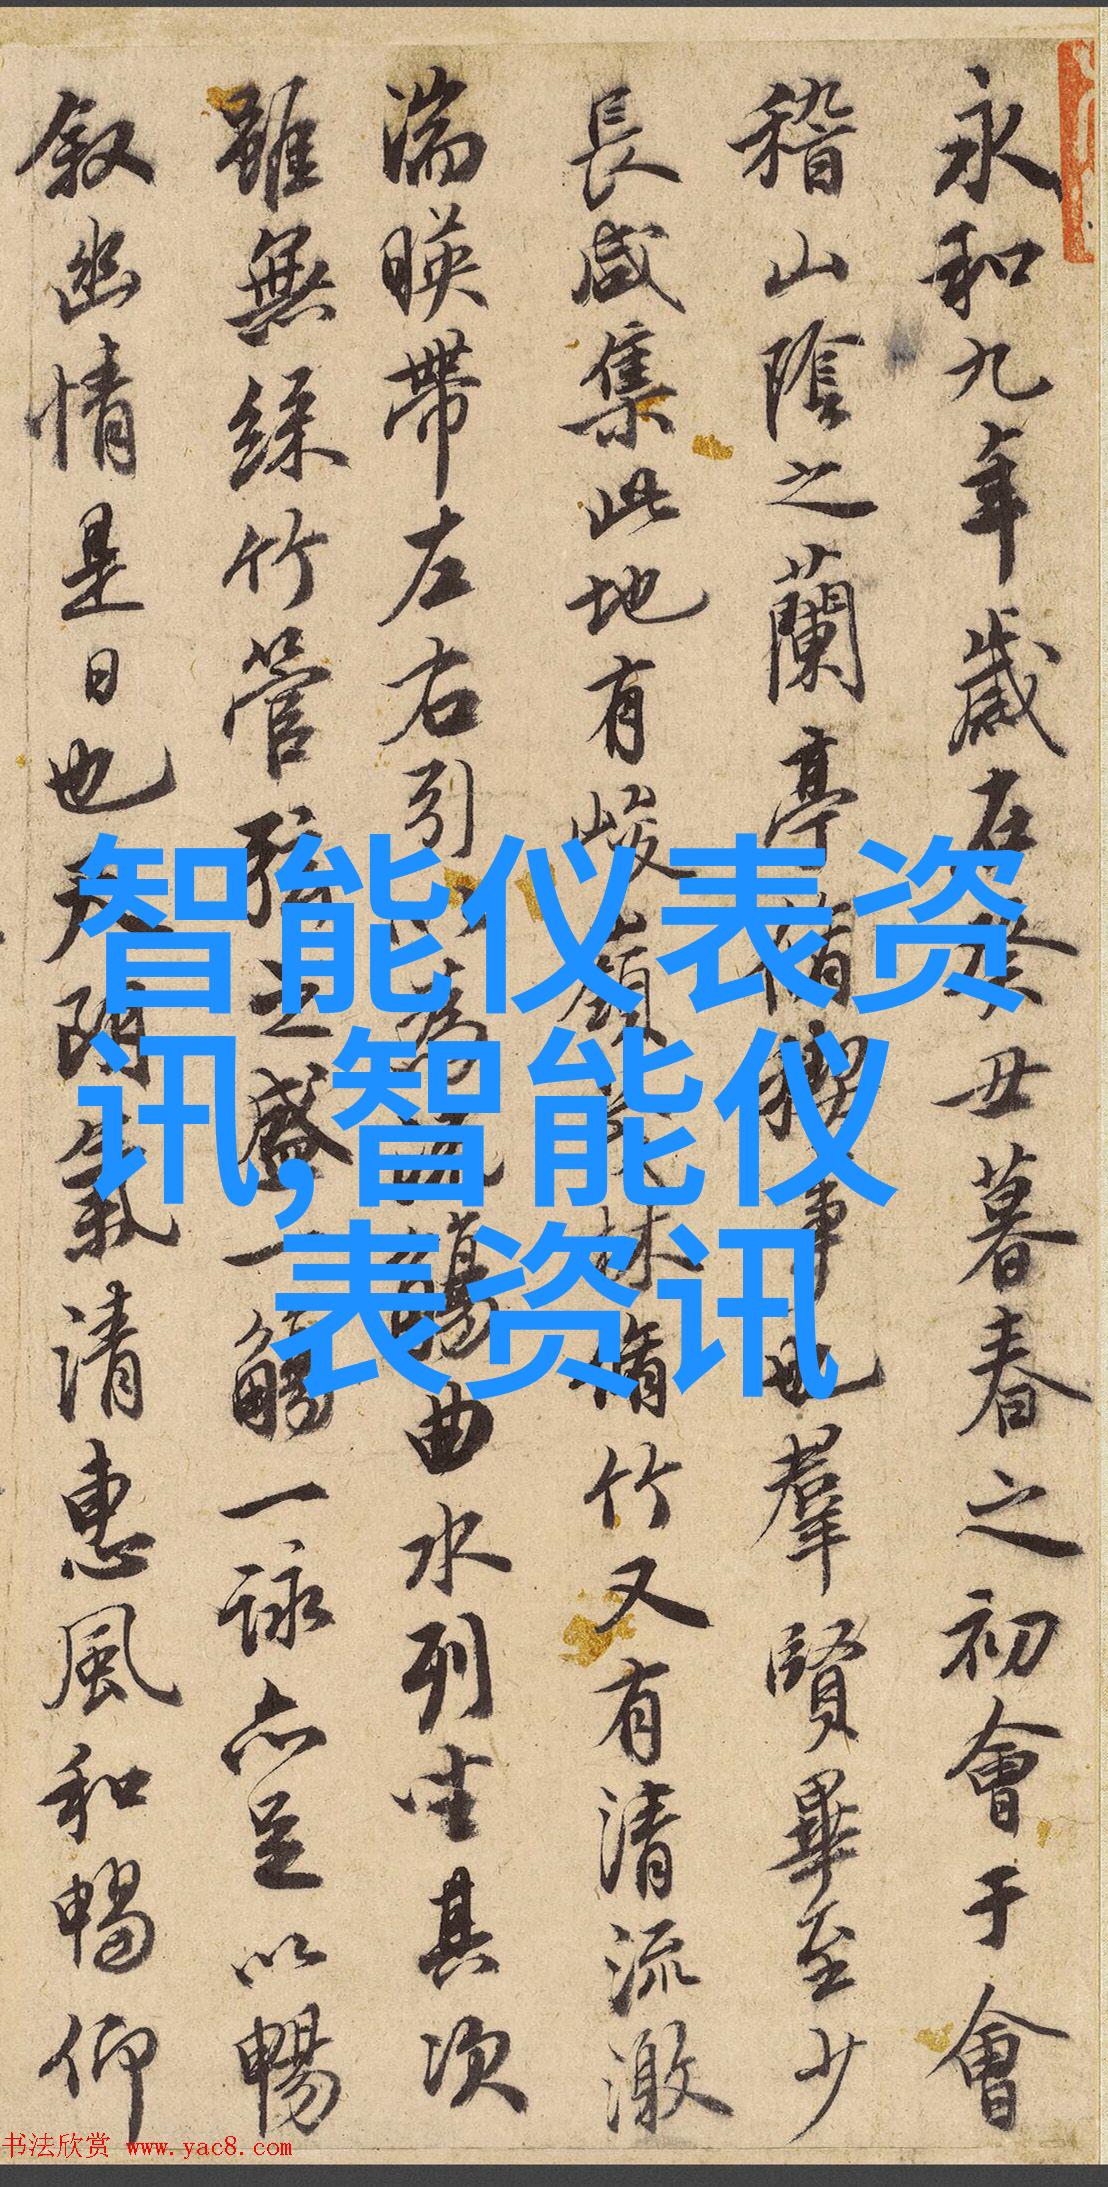 永和九年歲在癸丑暮春之初會于會
稽山陰之蘭亭脩稧事也羣賢畢至少
長咸集此地有峻嶺茂林脩竹又有清流激
湍暎帶左右引以為流觴曲水列坐其次
雖無絲竹管弦之盛一觴一詠亦足以暢
叙幽情是日也天朗氣清惠風和暢仰
智能仪表资
讯,智能仪
表资讯
书法欣赏 www.yac8.com